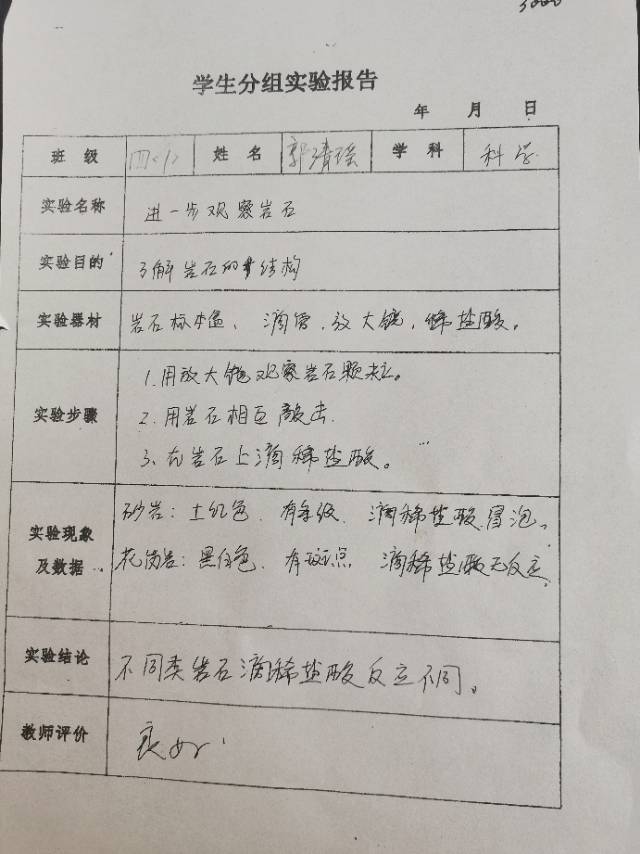 学生分组实验报告
年 月 日
班 级 四(1) 姓 名 郭清瑶 学 科 科学
实验名称 进一步观察岩石
实验目的 了解岩石的结构
实验器材 岩石标本盒、滴管、放大镜、稀盐酸。
实验步骤 1.用放大镜观察岩石颗粒。
2.用岩石相互敲击.
3、在岩石上滴稀盐酸。
实验现象及数据 砂岩:土红色、有条纹、滴稀盐酸冒泡。
花岗岩:黑白色、有斑点、滴稀盐酸无反应
实验结论 不同类岩石滴稀盐酸反应不同。
教师评价 良好